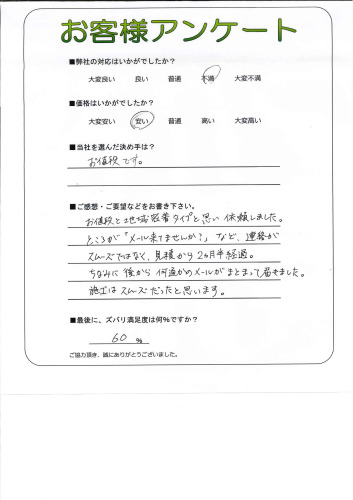 お客様アンケート
■弊社の対応はいかがでしたか?
大変良い 良い 普通 不満 大変不満
■価格はいかがでしたか?
大変安い 安い 普通 高い 大変高い
■当社を選んだ決め手は?
お値段です。
■ご感想・ご要望などをお書き下さい。
お値段と地域密着タイプと思い依頼しました。
ところが「メール来てませんか?」など、連絡が
スムーズではなく、見積から2ヵ月半経過。
ちなみに後から何通かのメールがまとまって届きました。
施工はスムーズだったと思います。
■最後に、ズバリ満足度は何%ですか?
60 %
ご協力頂き、誠にありがとうございました。